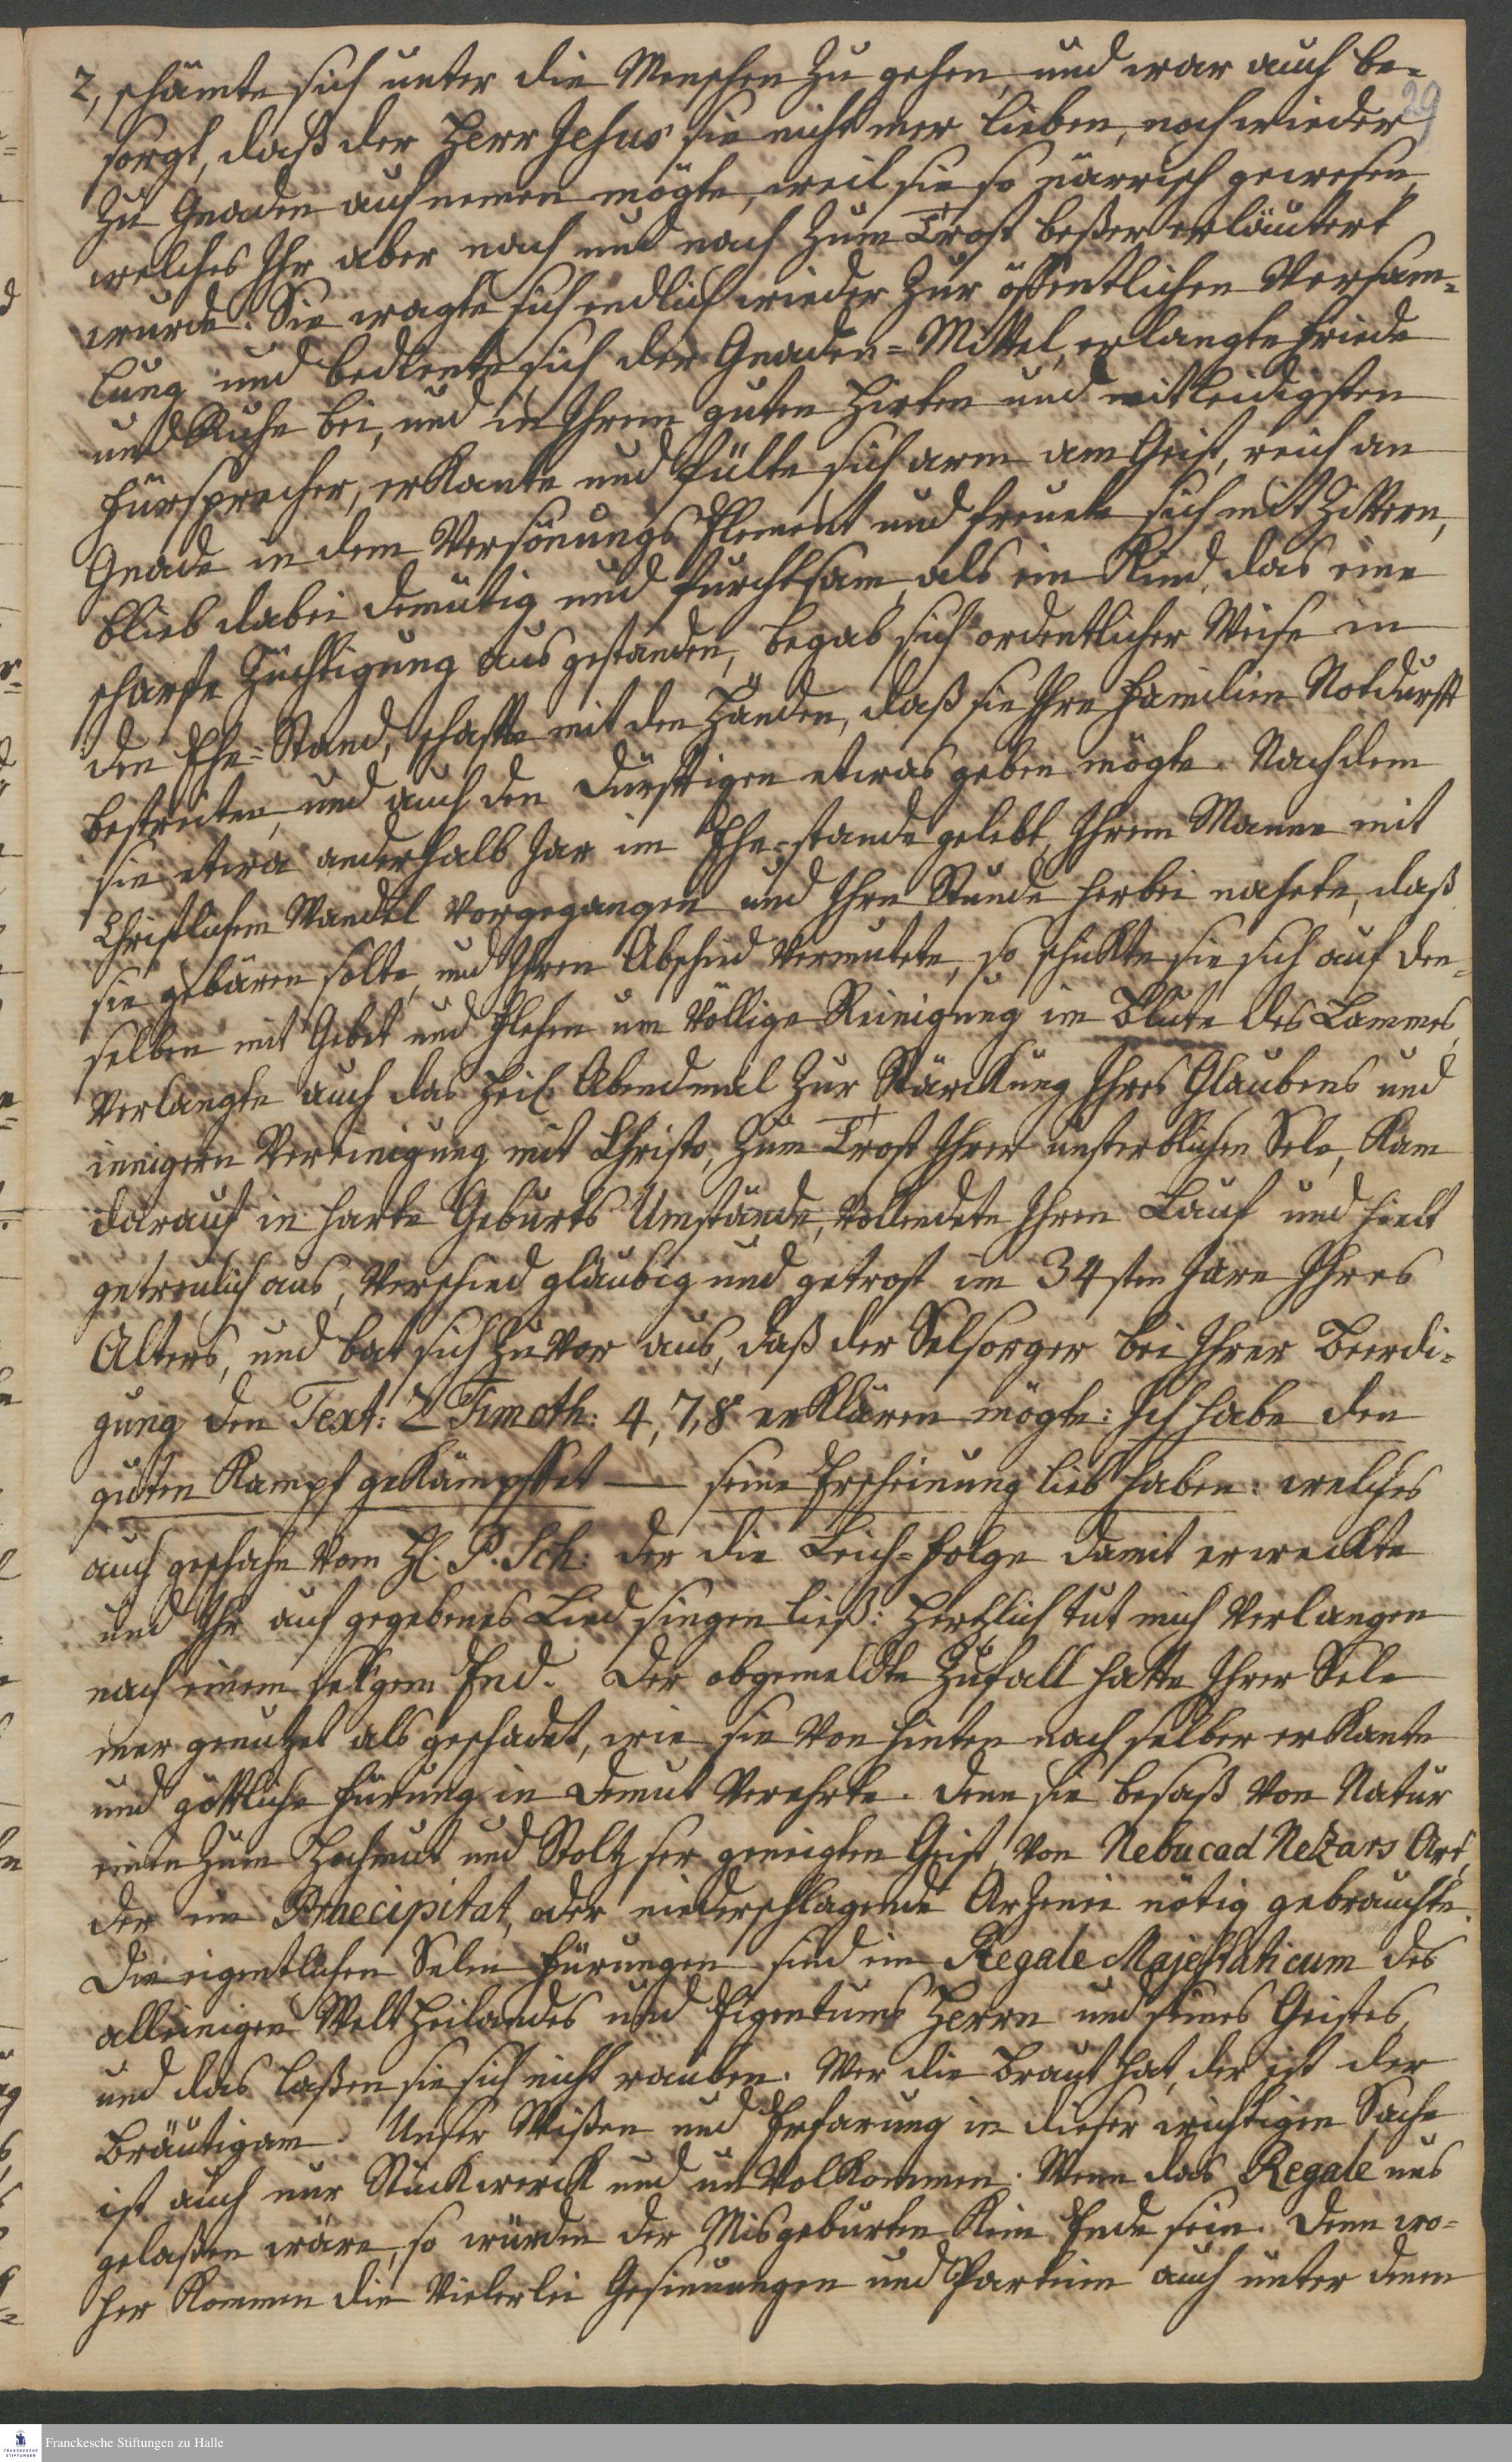 29
2, schämte sich unter die Menschen zu gehen, und war auch be-
sorgt, daß der Herr Jesus sie nicht mer lieben, noch wieder
zu Gnaden aufnemen mögte, weil sie so närrisch gewesen,
welches Ihr aber nach und nach zum Trost beßer erläutert
wurde. Sie wagte sich endlich wieder zur öffentlichen Versam-
lung und bediente sich der Gnaden-Mittel, erlangte Friede
und Ruhe bei, und in Ihrem guten Hirten und mitleidigsten
Fürsprecher, erkante und fülte sich arm am Geist, reich an
Gnade in dem Versönungs Element und freuete sich mit Zittern,
blieb dabei demütig und furchtsam, als ein Kind, das eine
scharfe Züchtigung ausgestanden, begab sich ordentlicher Weise in
den Ehe-Stand, schaffte mit den Händen, daß sie Ihre Familien Notdurft
bestreiten, und auch den Dürftigen etwas geben mögte. Nachdem
sie etwa anderhalb Jar im Ehe-stande gelebt, Ihrem Manne mit
Christlichem Wandel vorgegangen und Ihre Stunde herbei nahete, daß
sie gebären solte, und Ihren Abschied vermutete, so schickte sie sich auf den-
selben mit Gebet und Flehen um völlige Reinigung im Blute des Lammes,
verlangte auch das heil. Abendmal zur Stärckung Ihres Glaubens und
innigern Vereinigung mit Christo, zum Trost Ihrer unsterblichen Sele, kam
darauf in harte Geburts Umstände, vollendete Ihren Lauf und hielt
getreulich aus, verschied gläubig und getrost im 34sten Jare Ihres
Alters, und bat sich zuvor aus, daß der Selsorger bei Ihrer Beerdi-
gung den Text: 2 Timoth: 4, 7, 8 erklären mögte: Ich habe den
guten Kampf gekämpffet — seine Erscheinung lieb haben: welches
auch geschahe vom H. P. Sch: der die Leich-Folge damit erweckte
und Ihr aufgegebenes Lied singen ließ: Hertzlich tut mich verlangen
nach einem selgen End. Der obgemeldte Zufall hatte Ihrer Sele
mer genutzet als geschadet, wie sie von hinten nach selber erkante
und göttliche Fürung in Demut verehrte. Denn sie besaß von Natur
einen zum Hochmut und Stoltz ser geneigten Geist, von Nebucad Nezars Art,
der ein Praecipitat, oder niederschlagende Arzenei nötig gebrauchte.
Die eigentlichen Selen Fürungen sind ein Regale Majestaticum des
alleinigen Welt Heilandes und Eigentums Herrn und seines Geistes,
und das laßen sie sich nicht rauben. Wer die Braut hat, der ist der
Bräutigam. Unser Wißen und Erfarung in dieser wichtigen Sache
ist auch nur Stückwerck und unvolkommen. Wenn das Regale uns
gelaßen wäre, so würden der Misgeburten kein Ende sein. Denn wo-
her kommen die vielerlei Gesinnungen und Parteien auch unter denen
Franckesche Stiftungen zu Halle